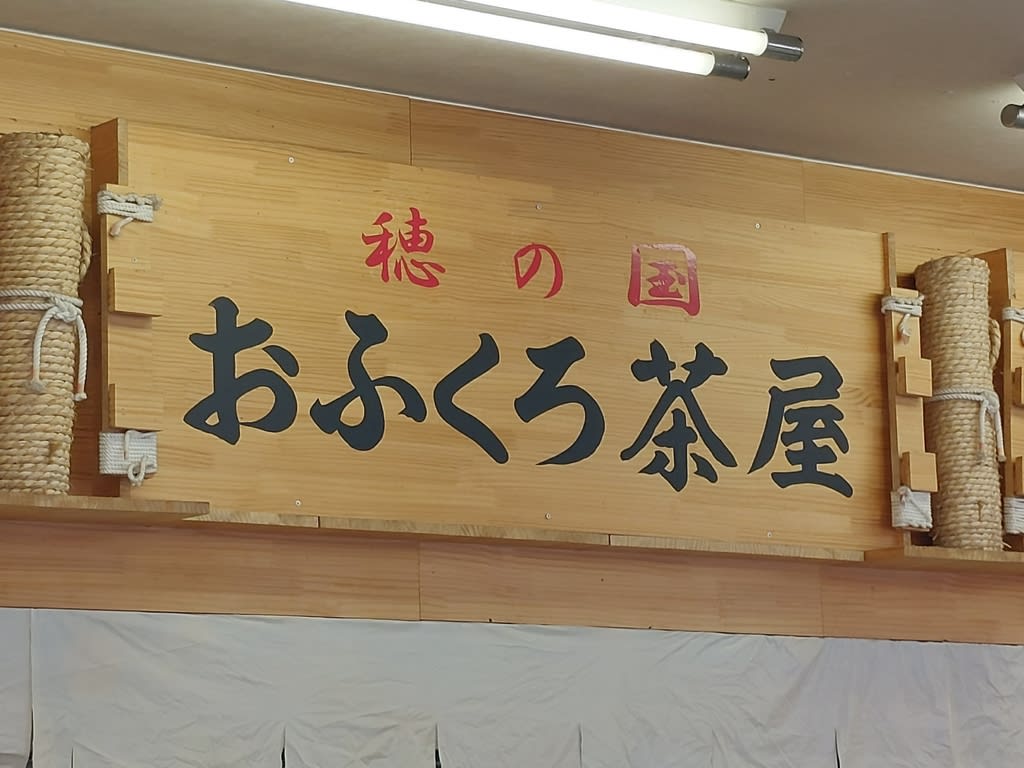 穂の国
おふくろ茶屋